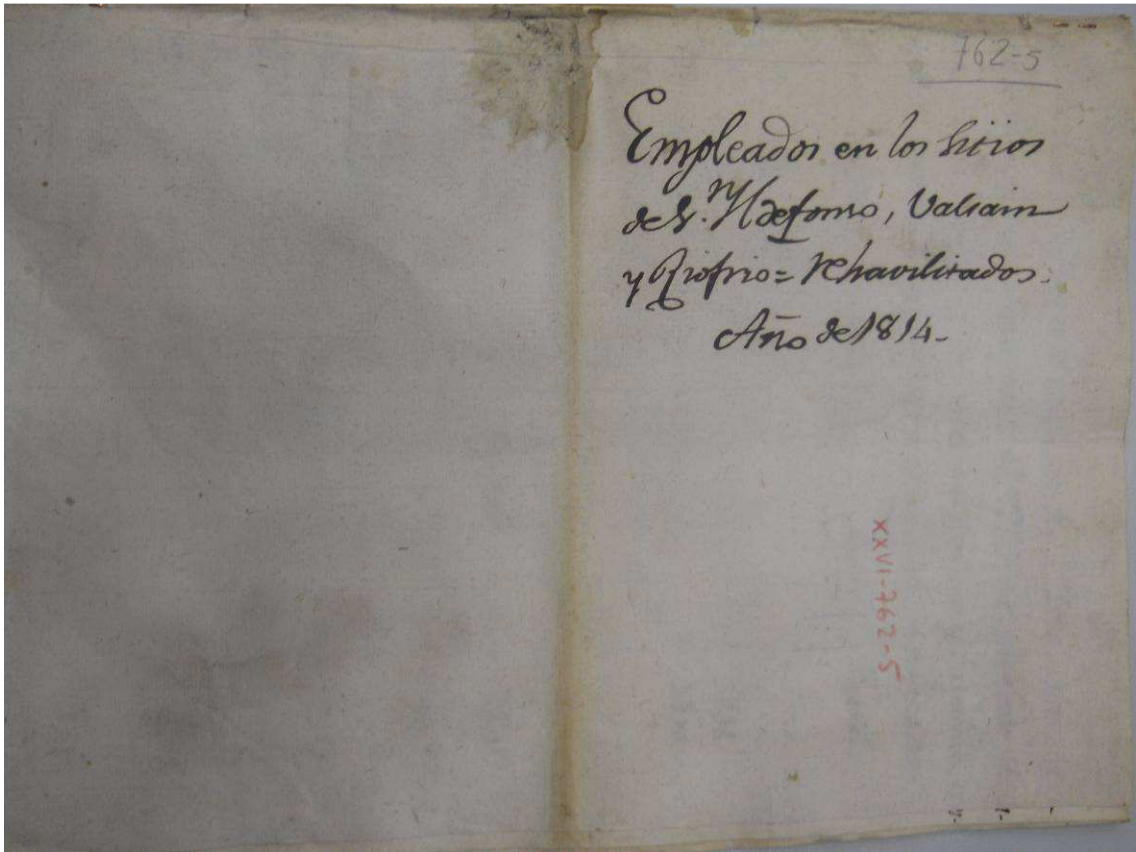 762-5
Empleados en los Sitios
de S.ⁿ Yldefonso, Valsain
y Riofrio = Rehavilitados.
Año de 1814.
XXVI-762-5